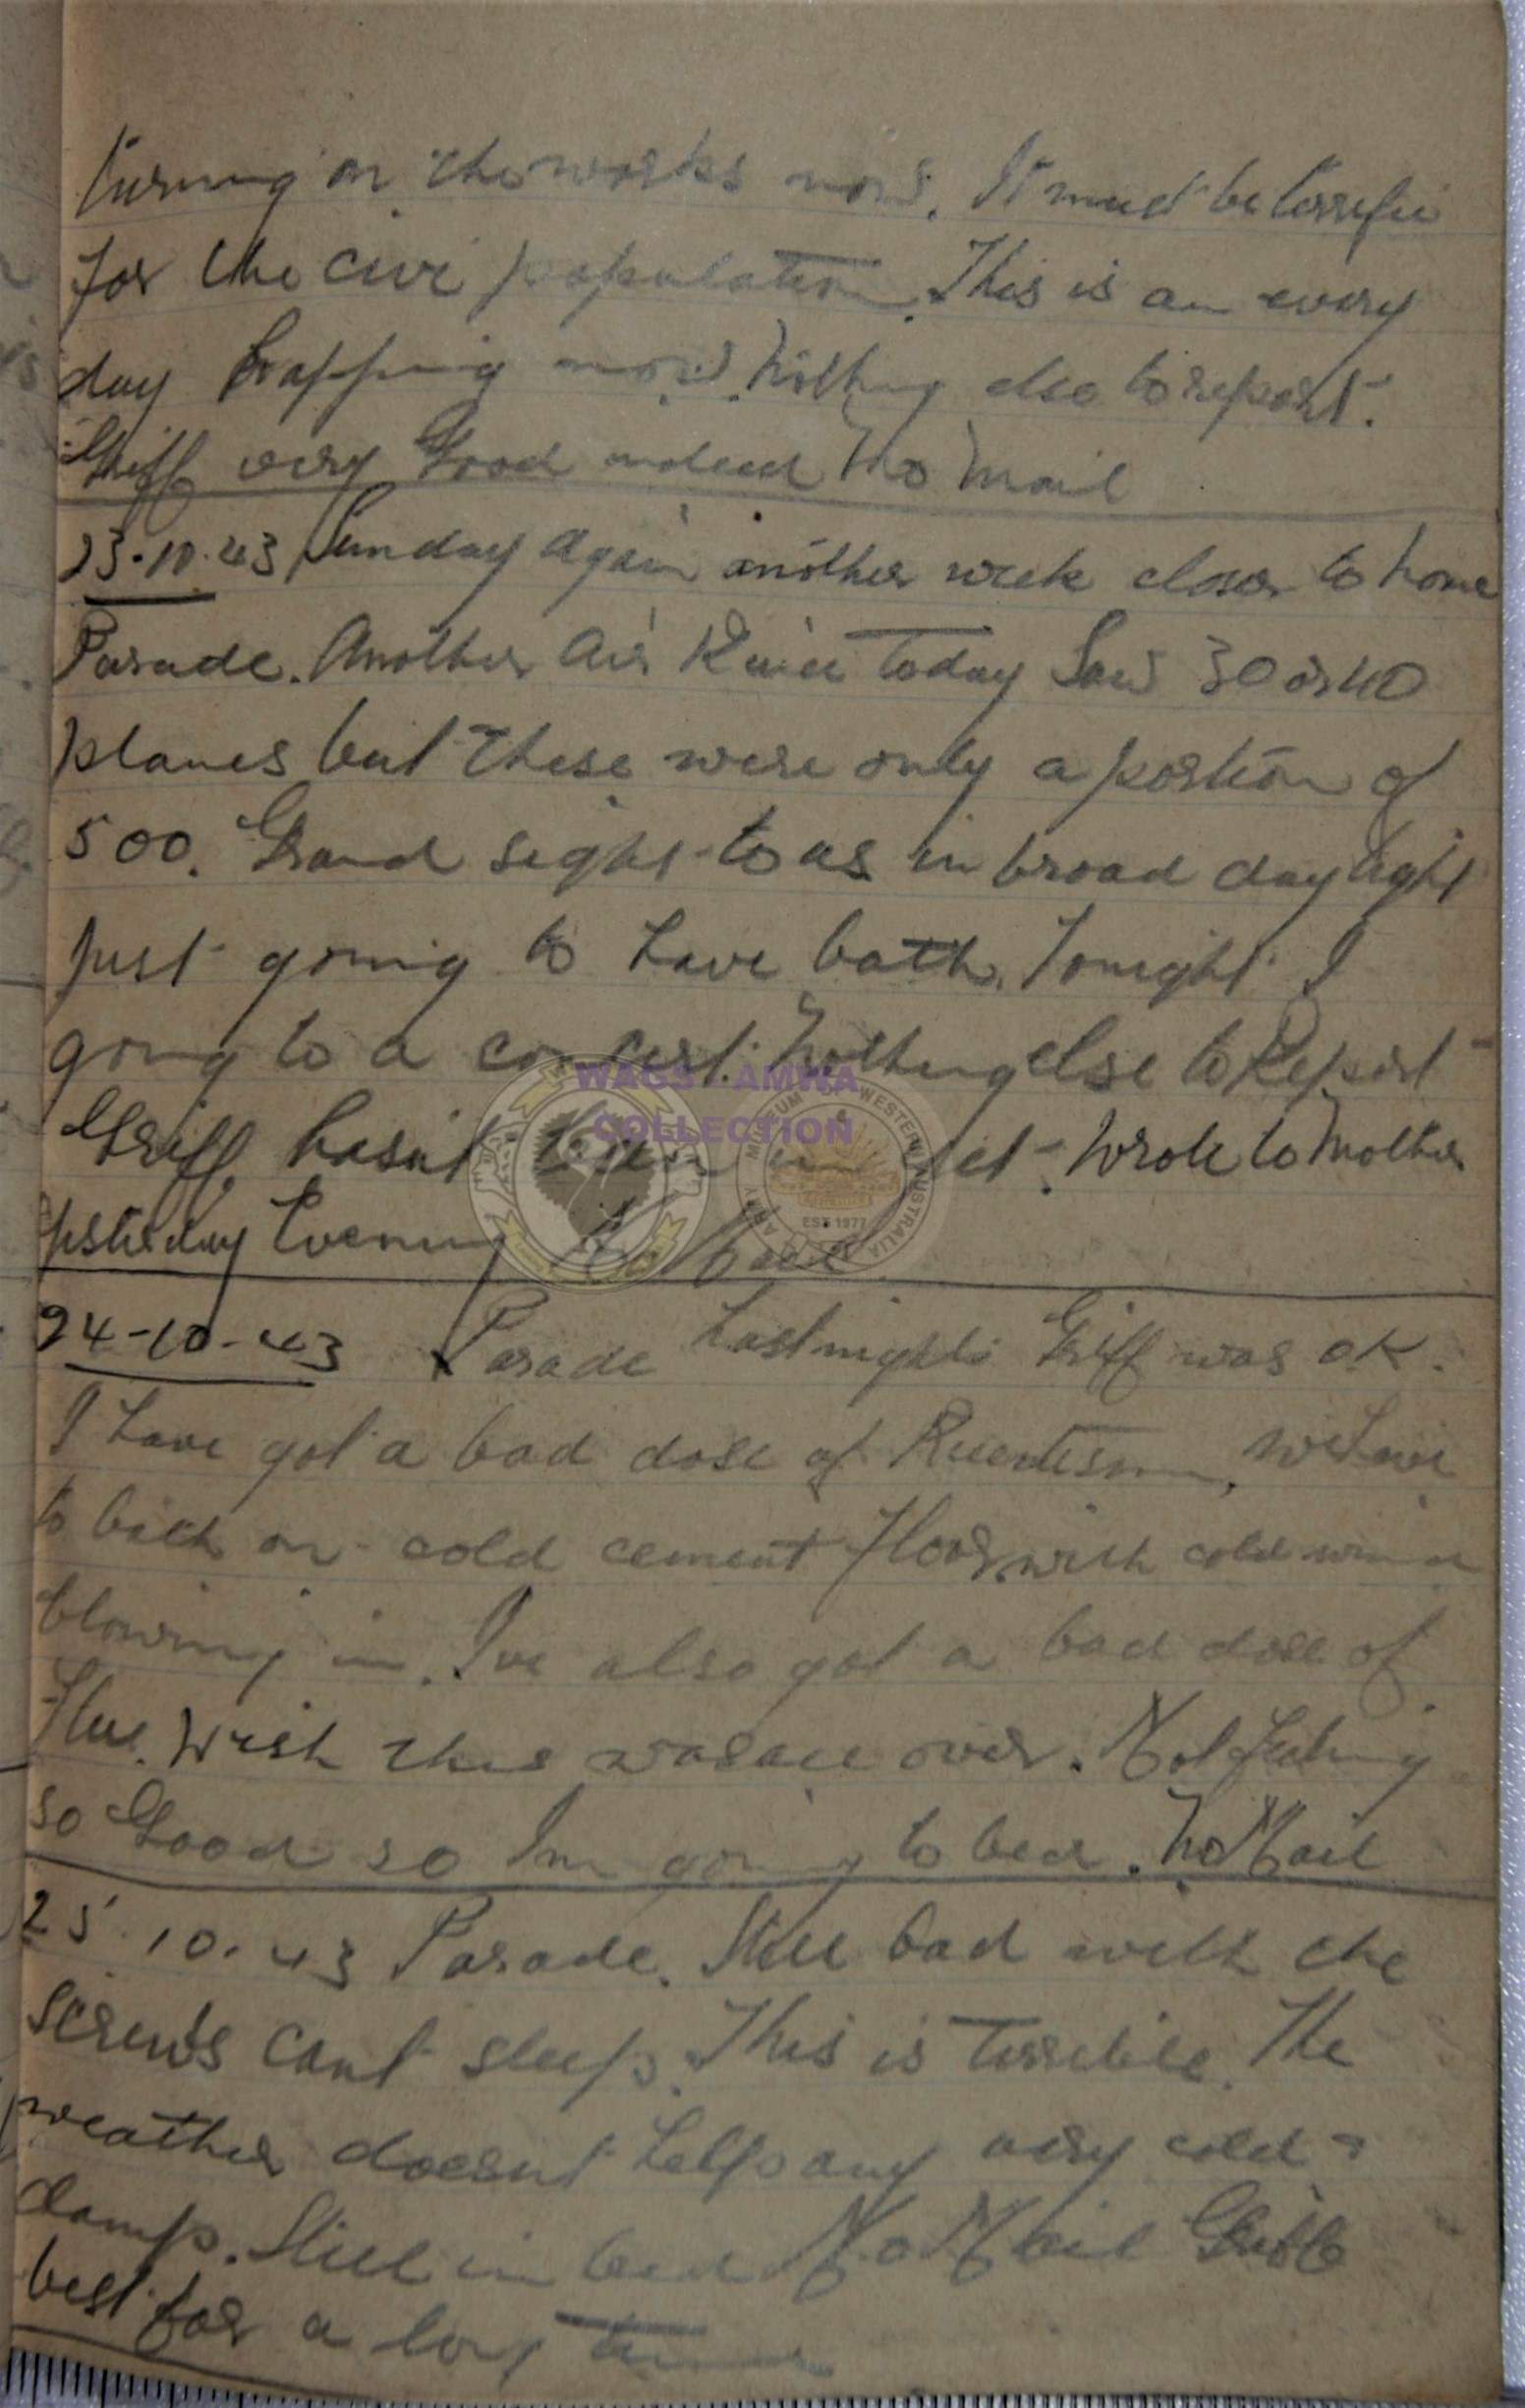 turning on the works now. It must be terrific
for the civi population. This is an every
day happening now. Nothing else to report.
Griff very Good indeed No Mail
23.10.43 Sunday again another week closer to home
Parade. Another Air Raid today Saw 30 or 40
planes but these were only a portion of
500. Grand sight to us in broad daylight
Just going to have bath. Tonight I
going to a concert. Nothing else to Report
Griff hasn't been in yet. Wrote to Mother
yesterday Evening No Mail
WAGS - AMWA
COLLECTION
ARMY MUSEUM OF WESTERN AUSTRALIA
EST 1977
24-10-43 Parade Last nights Griff was OK.
I have got a bad dose of , we have
to bath on cold cement floor with cold wind
blowing in. Ive also got a bad dose of
Flue. Wish this was all over. Not feeling
so Good so Im going to bed. No Mail
25.10.43 Parade. Still bad with the
screws cant sleep. This is terrible. The
weather doesnt help any very cold &
damp. Still in bed No Mail Griff
best for a long time